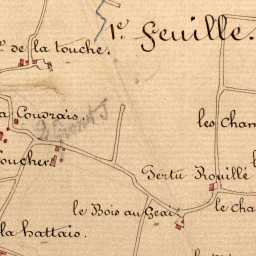 1e. Feuille.
de la touche.
Coudrais.
les Cham
Pertu Rouillé
le Bois au Geai
le Cha
la hattais.